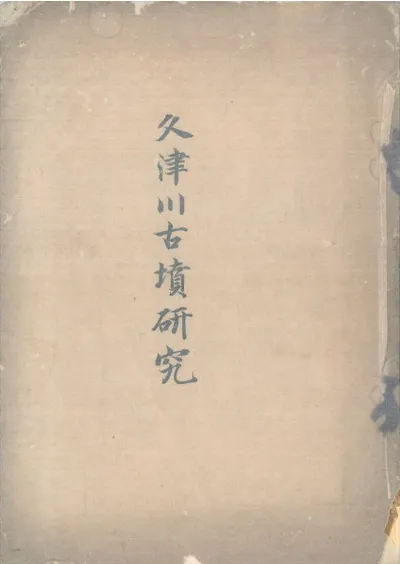 久津川古墳研究